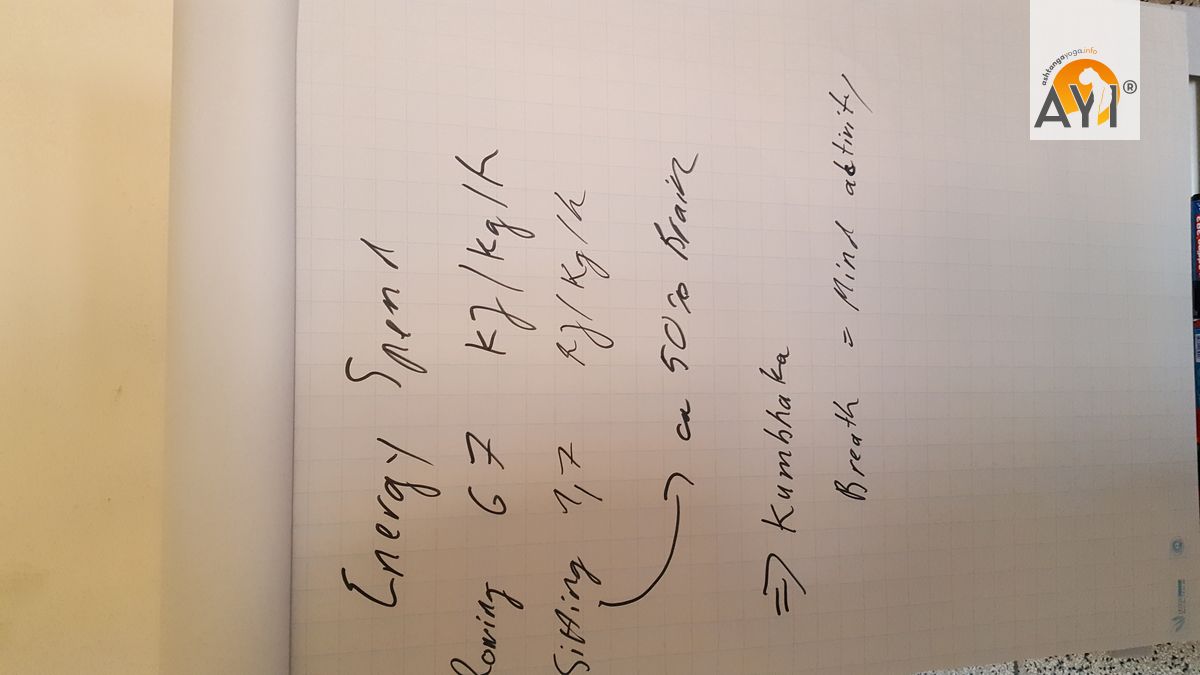 Energy Spend
Rowing 67 KJ/kg/h
Sitting 1,7 KJ/Kg/h
→ ca 50% Brain
⇒ Kumbhaka
Breath = Mind activity
ashtangayoga.info
AYI®